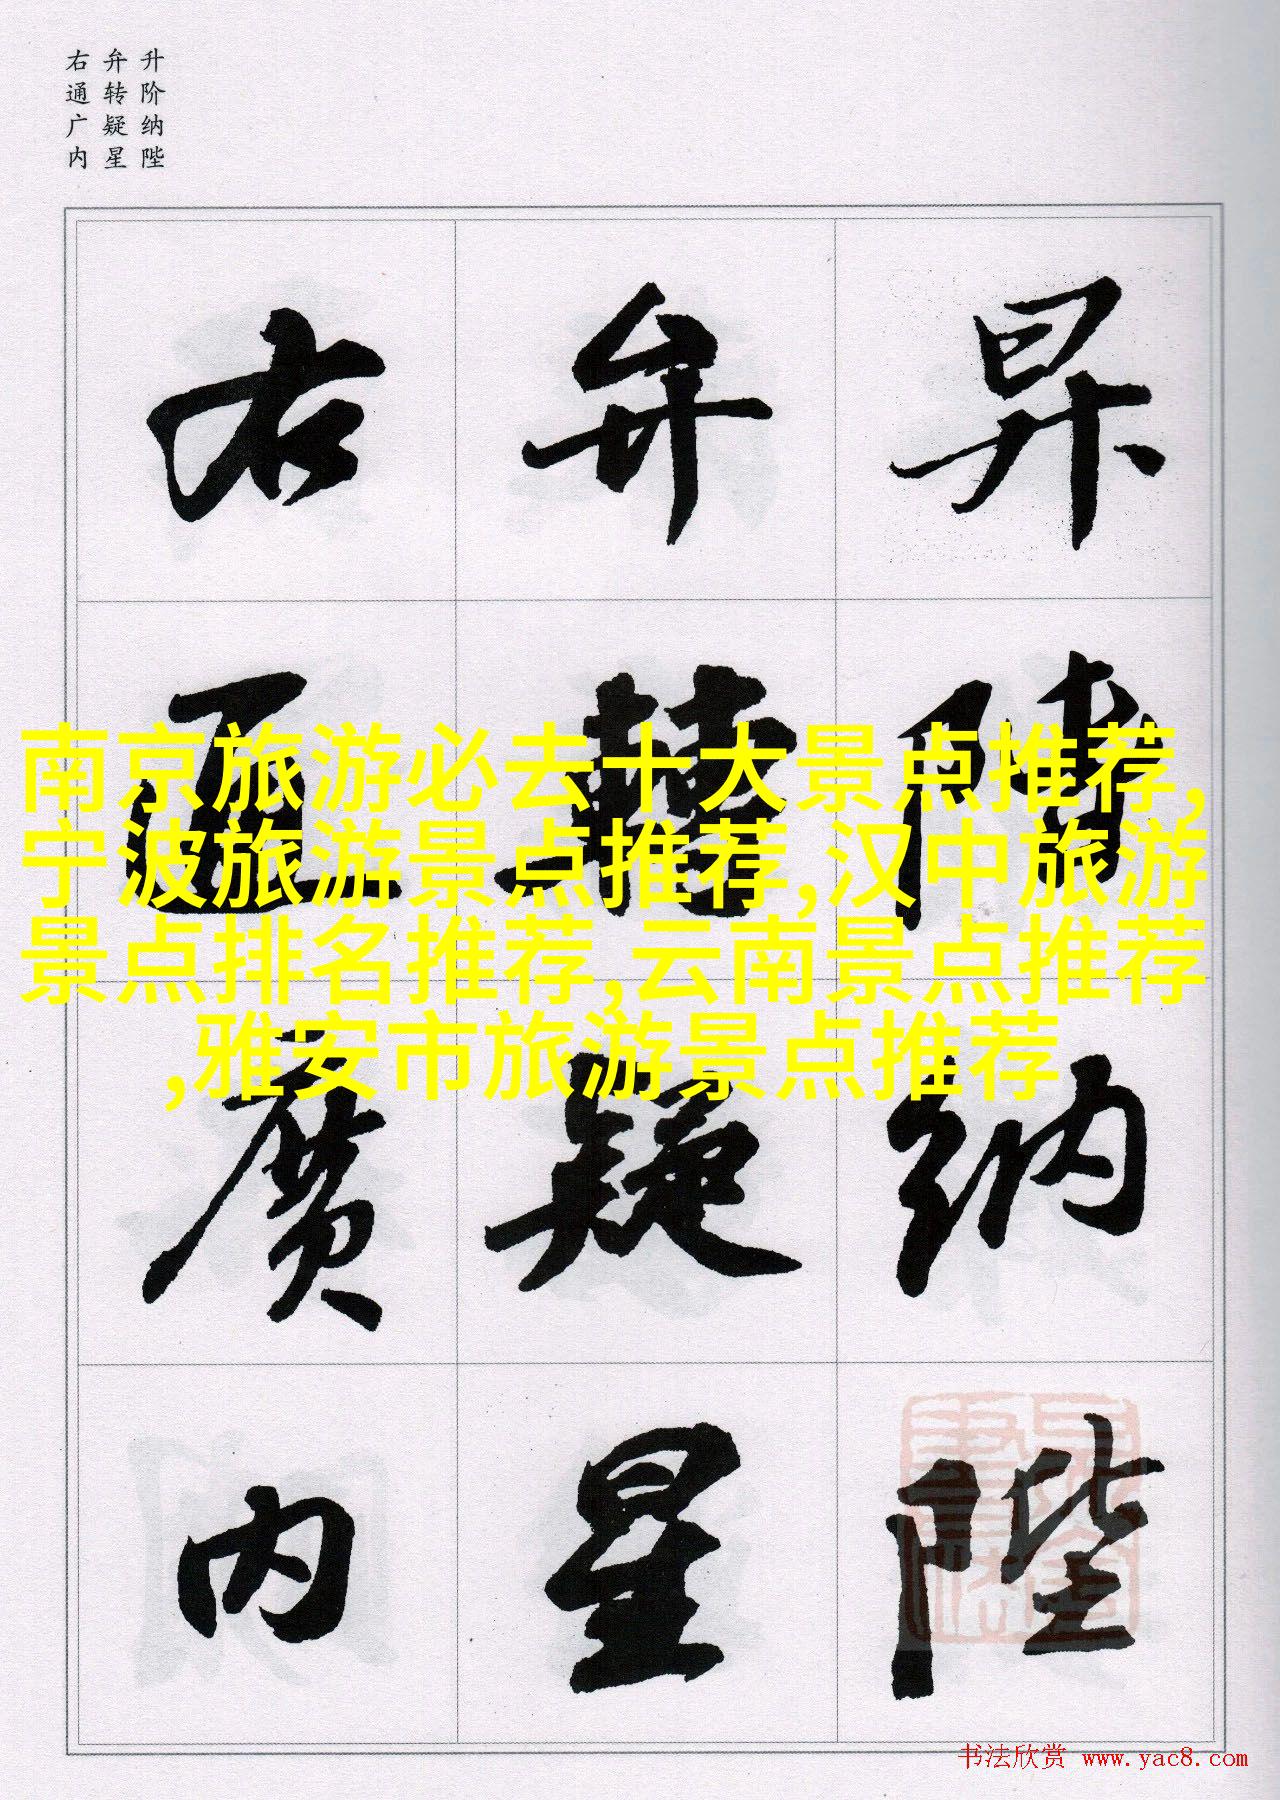 升阶纳陛
弁转疑星
右通广内
昇階納陛
弁轉疑星
右通廣内
南京旅游必去十大景点推荐,
宁波旅游景点推荐,汉中旅游
景点排名推荐,云南景点推荐
,雅安市旅游景点推荐
书法欣赏 www.yac8.com